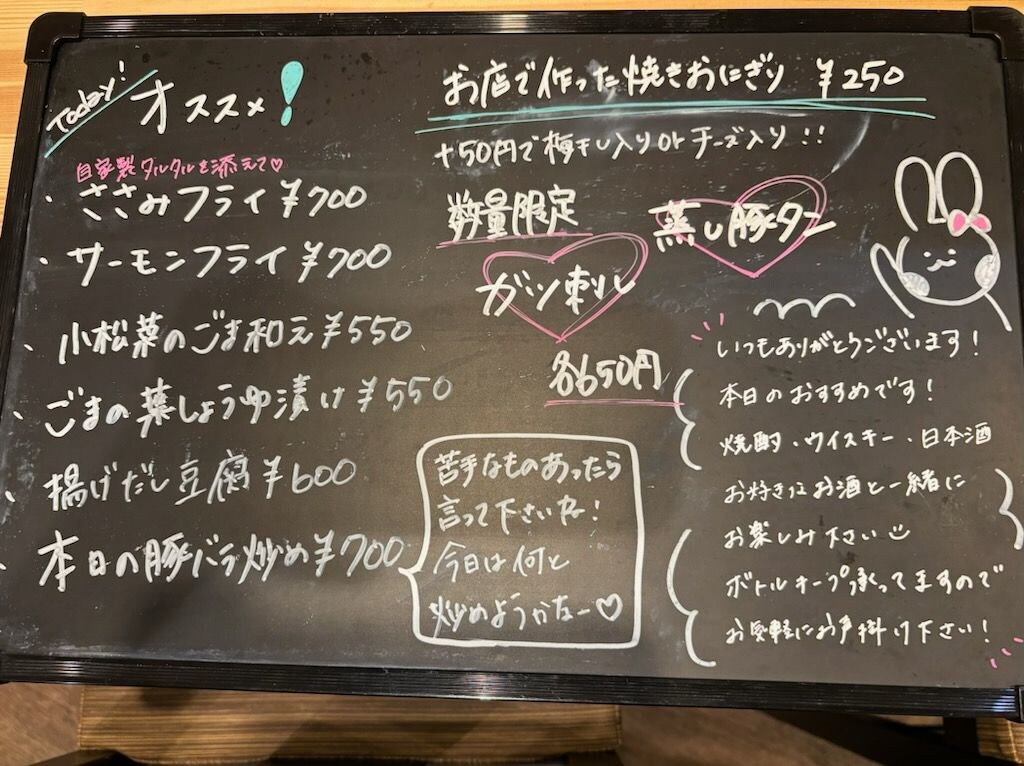 Today!
オススメ!
自家製タルタルを添えて♡
・ささみフライ ¥700
・サーモンフライ ¥700
・小松菜のごま和え ¥550
・ごまの葉しょうゆ漬け ¥550
・揚げだし豆腐 ¥600
・本日の豚バラ炒め ¥700
苦手なものあったら
言って下さいね!
今日は何と
炒めようかなー♡
お店で作った焼きおにぎり ¥250
+50円で梅干し入りorチーズ入り!!
数量限定
蒸し豚タン
ガツ刺し
各650円
いつもありがとうございます!
本日のおすすめです!
焼酎・ウイスキー・日本酒
お好きなお酒と一緒に
お楽しみ下さい
ボトルキープ承ってますので
お気軽にお声掛け下さい!